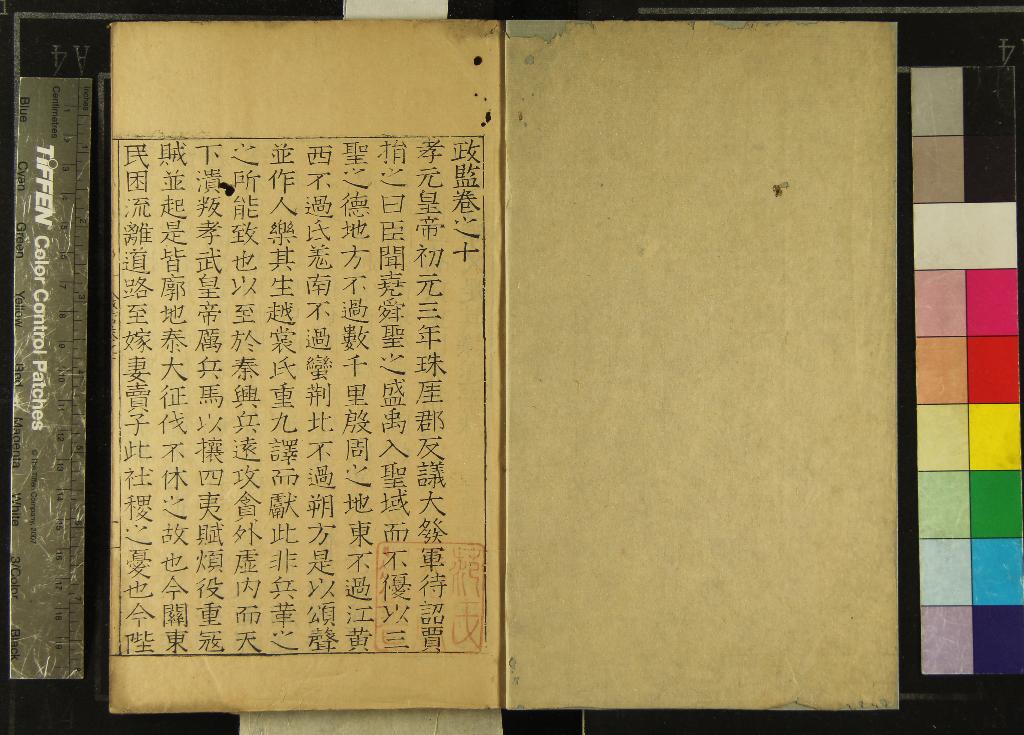 政監卷之十
孝元皇帝初元三年珠厓郡反議大發軍待詔賈
捐之曰臣聞堯舜聖之盛禹入聖域而不優以三
聖之德地方不過數千里殷周之地東不過江黃
西不過氐羌南不過蠻荆北不過朔方是以頌聲
並作人樂其生越裳氏重九譯而獻此非兵革之
之所能致也以至於秦興兵遠攻貪外虛内而天
下潰叛孝武皇帝厲兵馬以攘四夷賦煩役重寇
賊並起是皆廓地泰大征伐不休之故也今關東
民困流離道路至嫁妻賣子此社稷之憂也今陛
TIFFEN Color Control Patches
© The Tiffen Company, 2007
Centimetres
Inches
Blue
Cyan
Green
Yellow
Red
Magenta
White
3/Color
Black